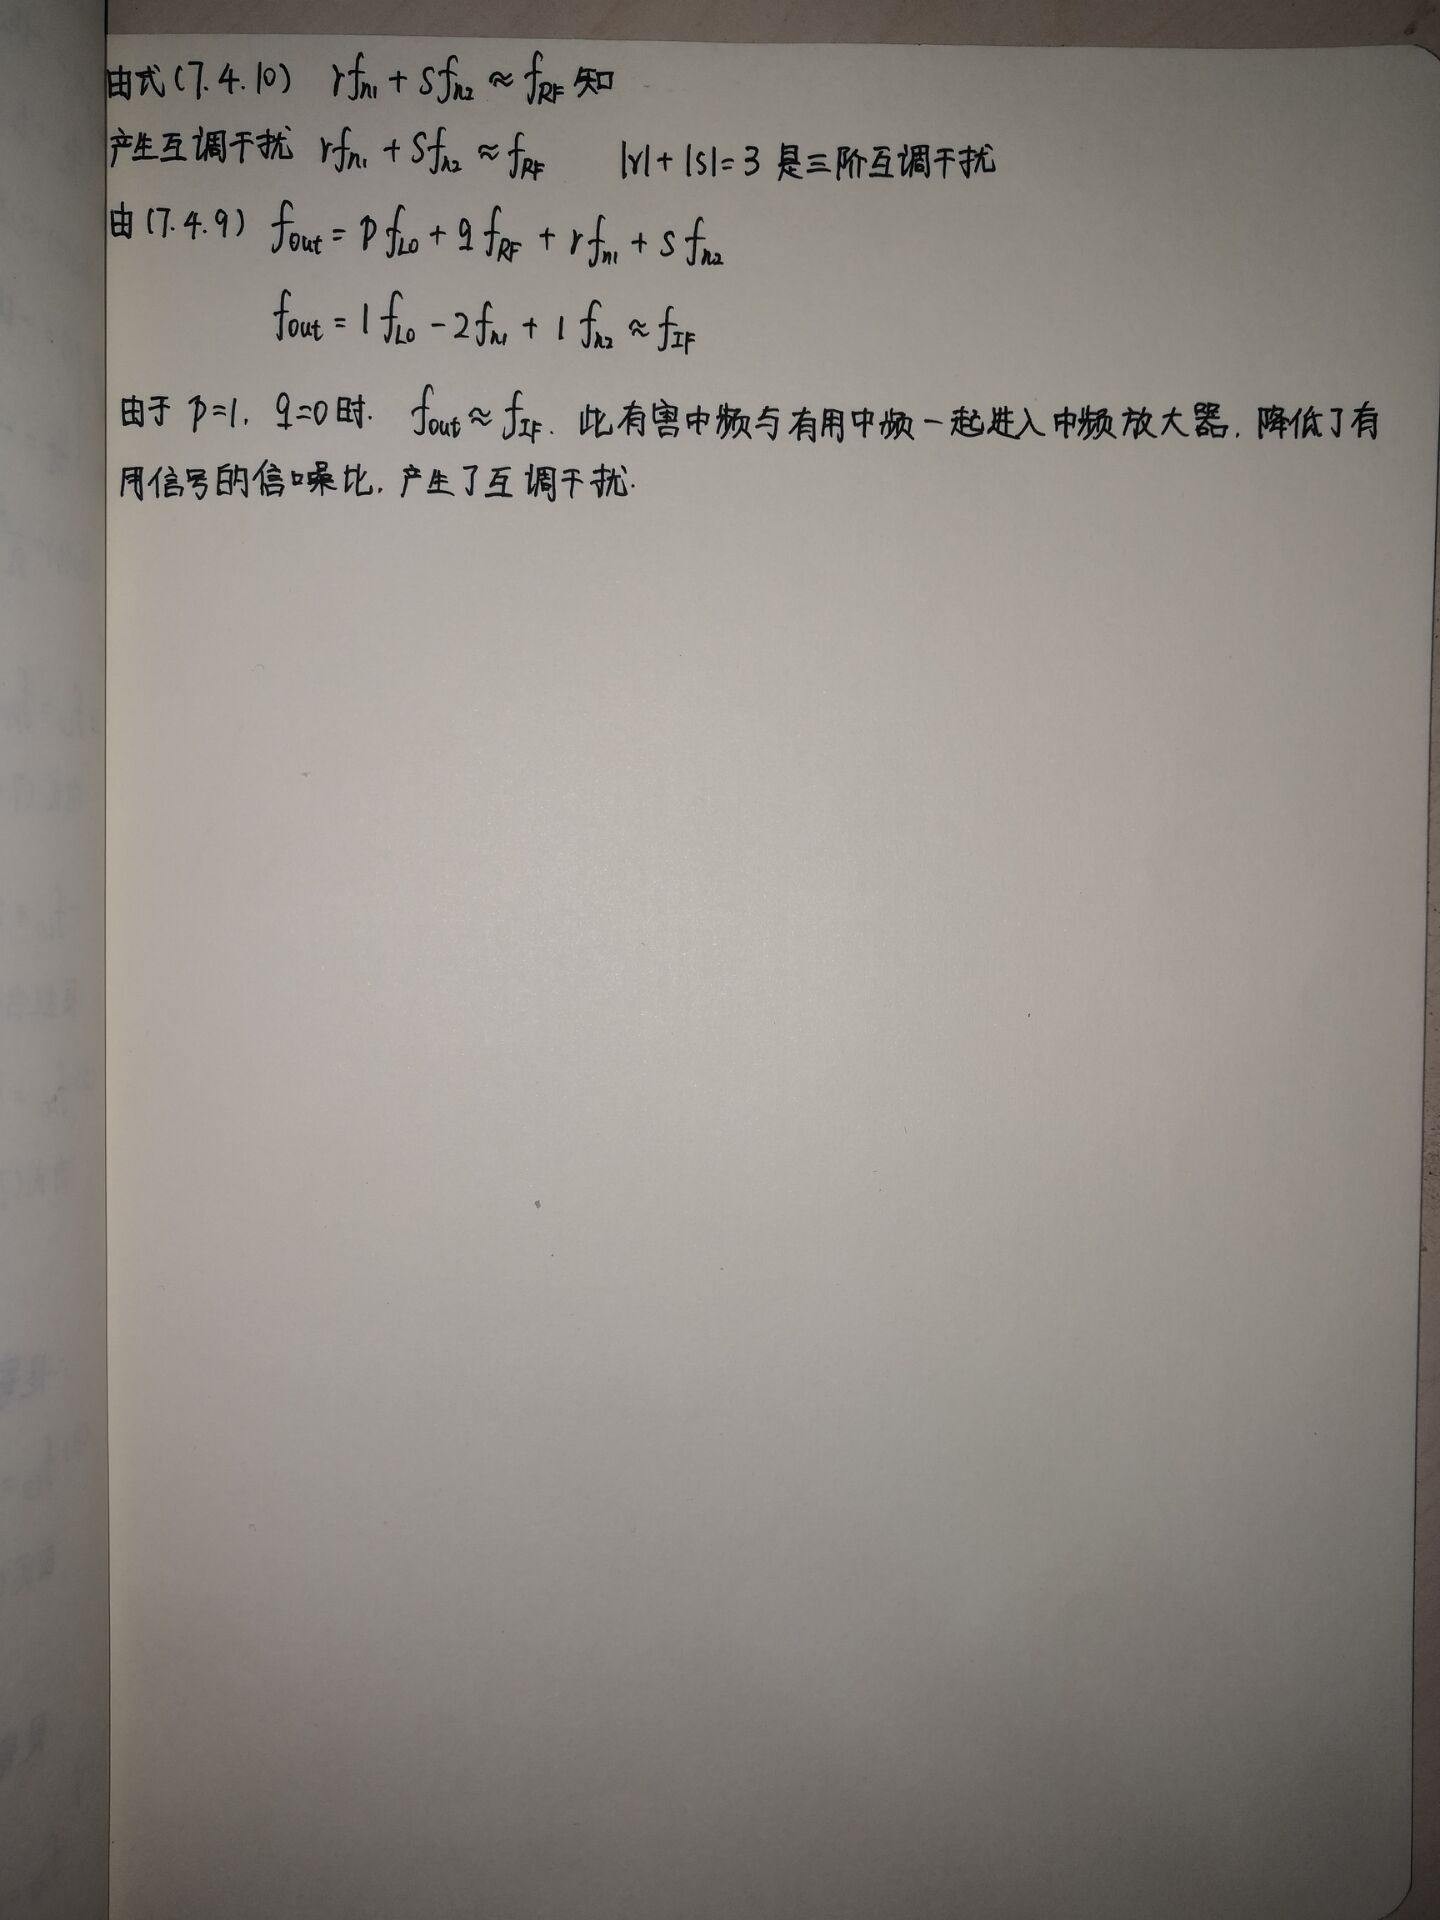 由式(7.4.10) rfn1 + Sfn2 ≈ fRF 知
产生互调干扰 rfn1 + Sfn2 ≈ fRF |r|+|s|=3 是三阶互调干扰
由(7.4.9) fout = pfLO + qfRF + rfn1 + sfn2
fout = 1fLO - 2fn1 + 1fn2 ≈ fIF
由于 p=1, q=0时. fout ≈ fIF. 此有害中频与有用中频一起进入中频放大器, 降低了有
用信号的信噪比, 产生了互调干扰.